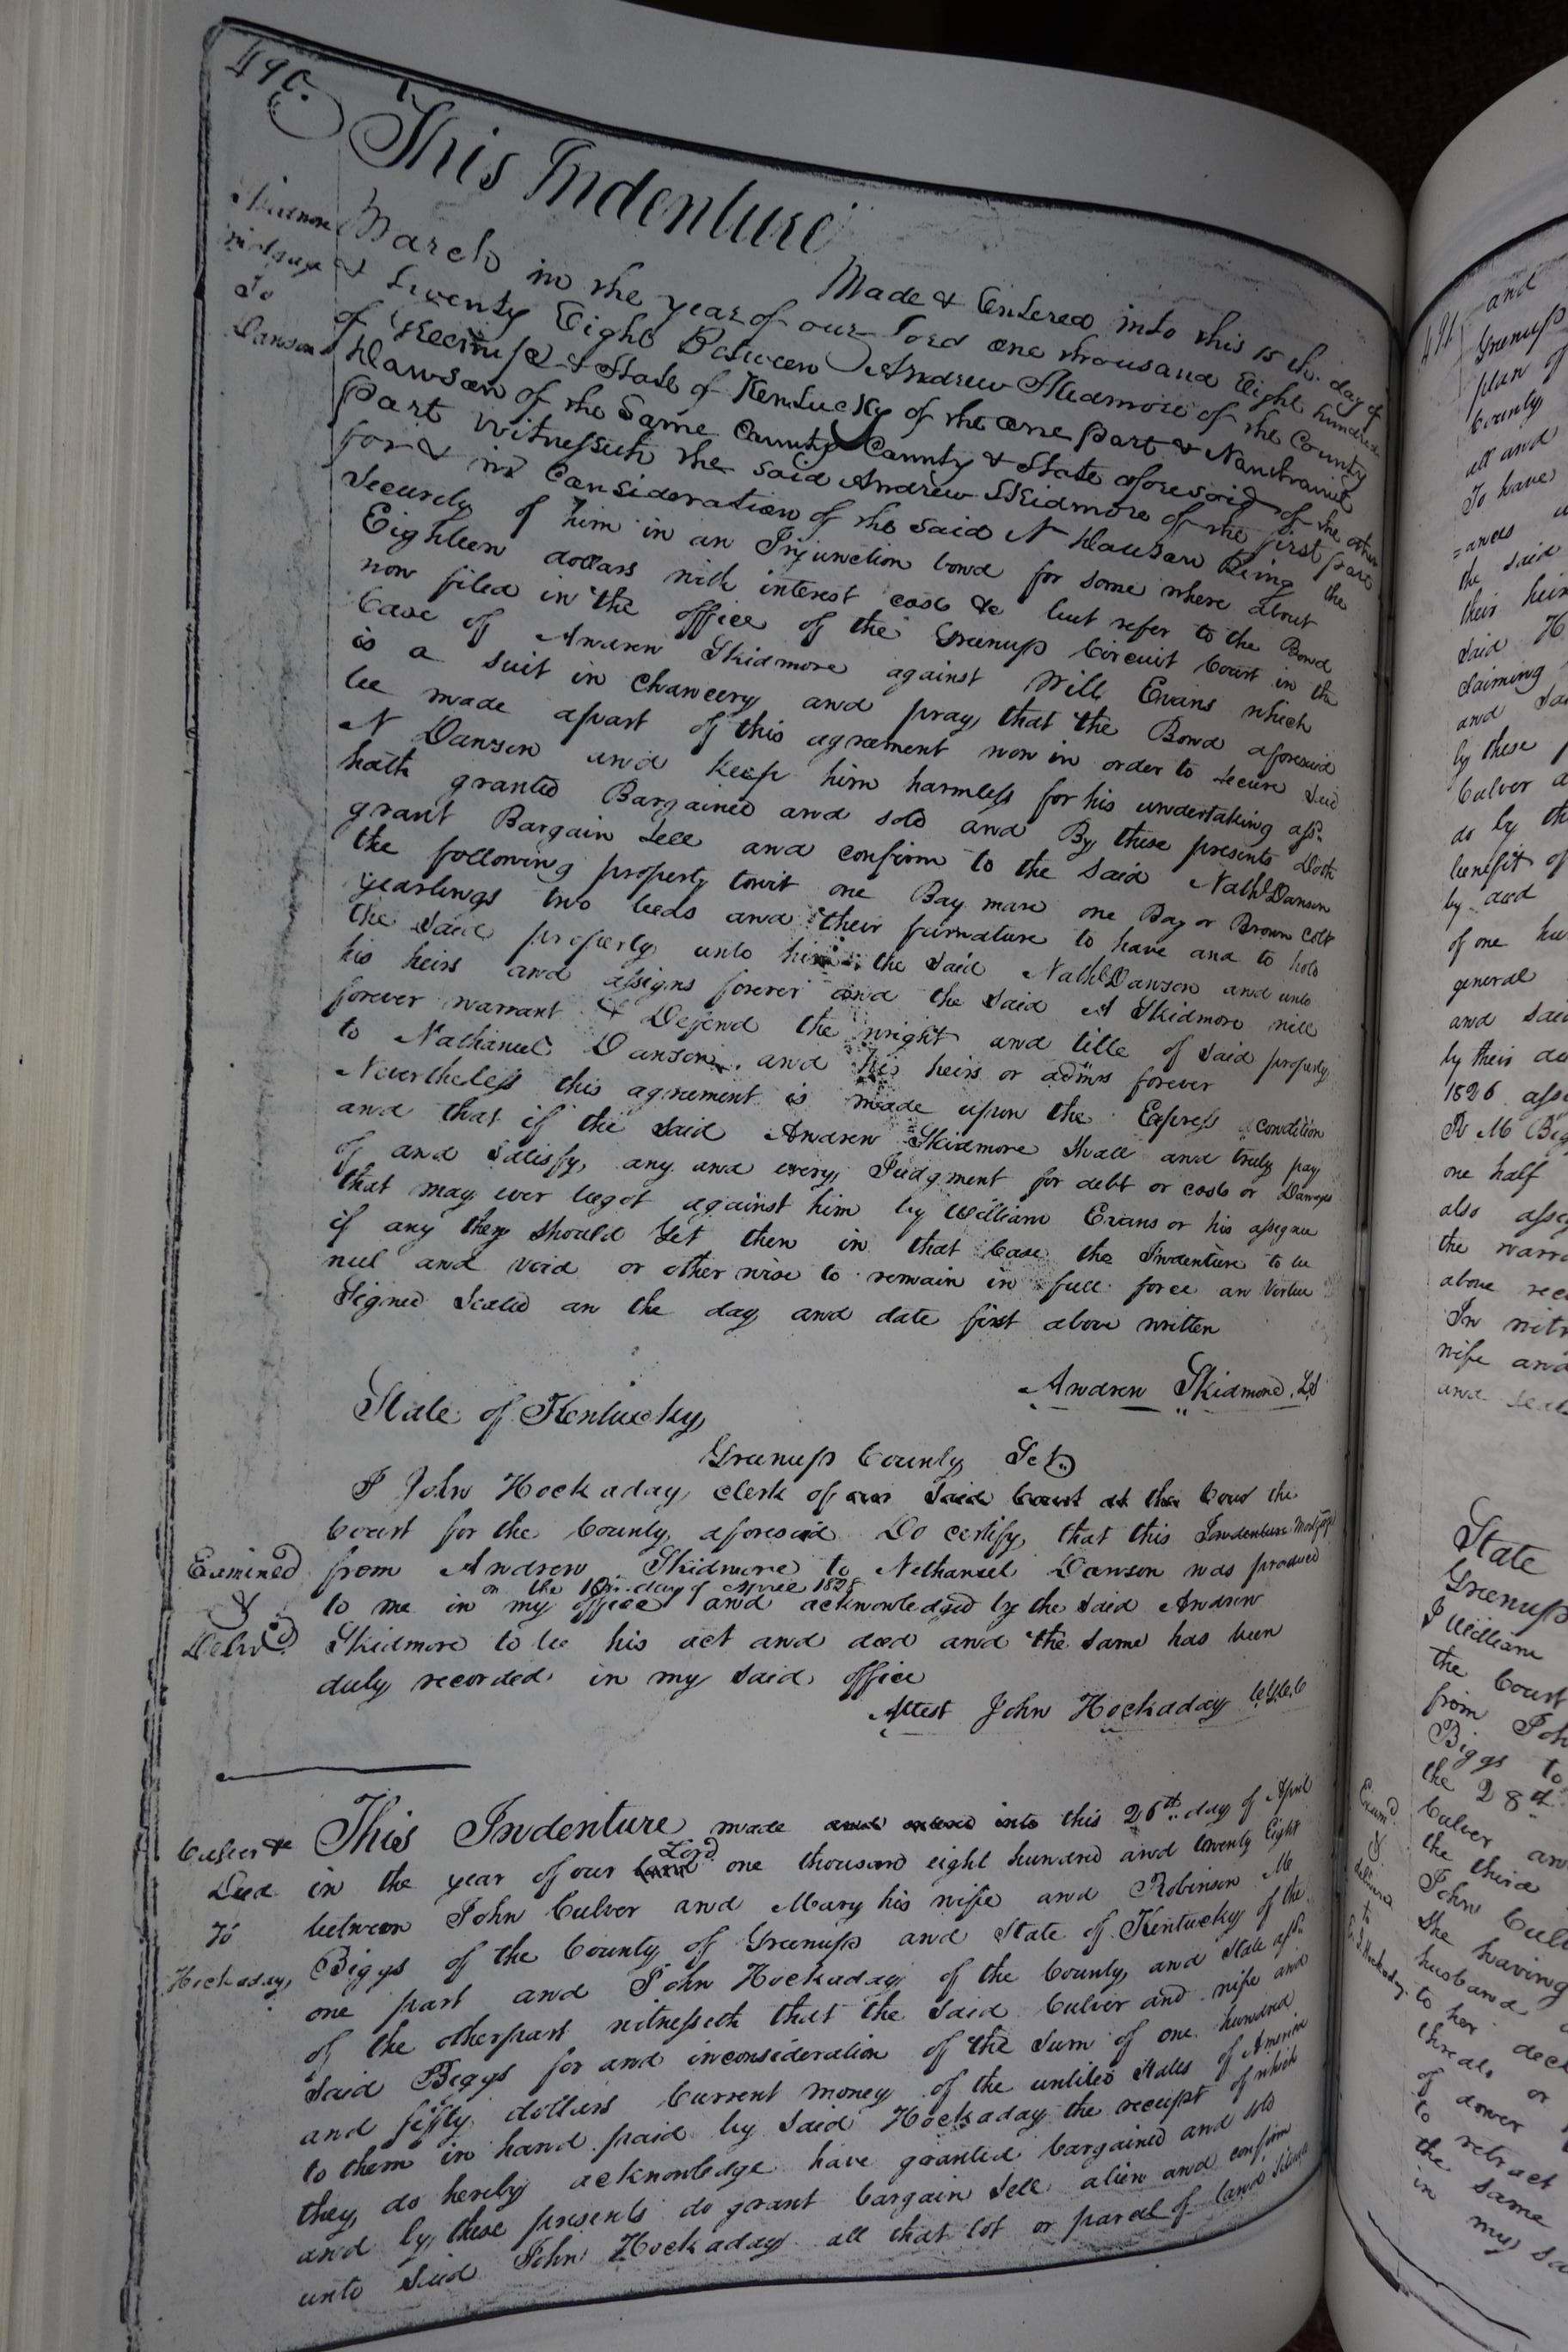 490.
This Indenture
Made & Entered into this 15 th. day of
March in the year of our Lord one thousand Eight hundred
& Twenty Eight Between Andrew Skidmore of the County
of Greenup & State of Kentucky of the one part & Nauthaniel
Dawson of the Same County County & State aforesaid of the other
Part Witnesseth the said Andrew Skidmore of the first part
for & in Consideration of the said N Dawson Being the
Security of him in an Injunction bond for some where about
Eighteen dollars with interest cost &c but refer to the Bond
now filed in the office of the Greenup Circuit Court in the
Case of Andrew Skidmore against Will Evans which
is a suit in Chancery and pray that the Bond aforesaid
be made apart of this agreement now in order to secure said
N Dawson and keep him harmless for his undertaking afsd.
hath granted Bargained and sold and By these presents doth
grant Bargain Sell and confirm to the said Nathl Dawson
the following property towit one Bay mare one Bay or Brown Colt
yearlings two beds and their furnature to have and to hold
the said property unto him the said Nathl Dawson and unto
his heirs and assigns forever and the said A Skidmore will
forever warrant & Defend the wright and title of said property
to Nathaniel Dawson and his heirs or admrs forever
Nevertheless this agreement is made upon the Express condition
and that if the said Andrew Skidmore shall and truly pay
of and satisfy any and every Judgment for debt or cost or Damages
that may ever begot against him by William Evans or his assignee
if any they should Get then in that Case the Indenture to be
null and void or otherwise to remain in full force an Virtue
Signed Sealed an the day and date first above written
Andrew Skidmore. LS
State of Kentucky
Greenup County Sct.
I John Hockaday clerk of our said Court at the Cour the
Court for the County aforesaid Do certify that this Indenture Mortgage
from Andrew Skidmore to Nathaniel Dawson was produced
on the 10th. day of April 1828
to me in my office and acknowledged by the said Andrew
Skidmore to be his act and deed and the same has been
duly recorded in my said office
Attest John Hockaday C.G.C.C
Skidmore
Mortgage
To
Dawson
Examined
&
Delivd.
Culver &c
Deed
To
Hockaday
This Indenture made and entered into this 26th. day of April
in the year of our Land Lord one thousand eight hundred and twenty Eight
between John Culver and Mary his wife and Robinson M
Biggs of the County of Greenup and State of Kentucky of the
one part and John Hockaday of the County and State afsd.
of the otherpart witnesseth that the said Culver and wife and
said Biggs for and inconsideration of the sum of one hundred
and fifty dollars Current money of the united States of America
to them in hand paid by said Hockaday the receipt of which
they do hereby acknowledge have granted bargained and sold
and by these presents do grant bargain Sell alien and confirm
unto said John Hockaday all that lot or parcel of land
491
and
Greenup
plan of
County
all and
To have
=ances
the said
their heirs
said H
claiming
and
by these
Culver a
do by th
benefit of
by and
of one hu
general
and said
by their
1826
R M Big
one half
also
the warra
above rec
In witn
wife and
and seal
State
Greenup
I William
the Court
from Joh
Biggs to
the 28th
Culver an
the third
John Culv
She having
husband
to her dec
threats or
of dower
to retract
the same
in my sa
Examd.
&
delivered
to
J Hockaday